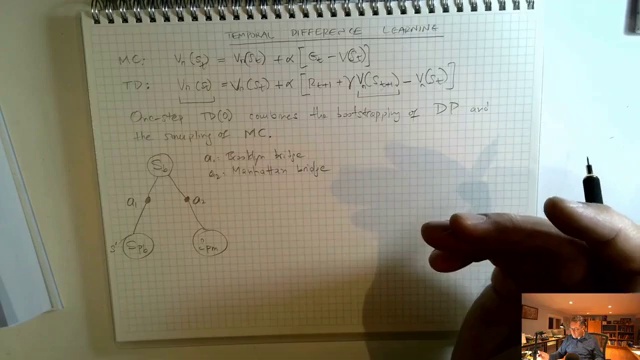 TEMPORAL DIFFERENCE LEARNING
MC: Vπ(St) = Vπ(St) + α [Gt - V(St)]
TD: Vπ(s) = Vπ(St) + α [Rt+1 + γ Vπ(St+1) - Vπ(St)]
One-step TD(0) combines the bootstrapping of DP and
the sampling of MC.
a1: Brooklyn bridge
a2: Manhattan bridge
Sb
a1 a2
s' Spb Spm